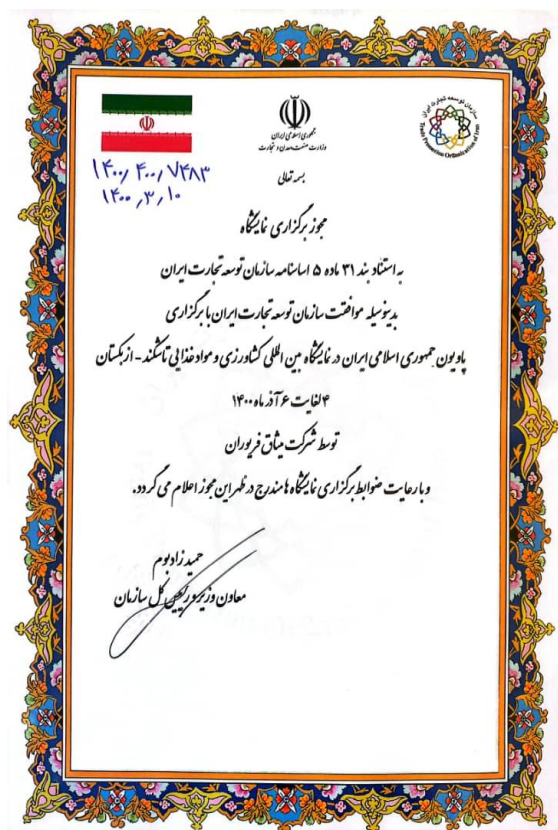 سازمان توسعه تجارت ایران
Trade Promotion Organization of Iran
جمهوری اسلامی ایران
وزارت صنعت، معدن و تجارت
۱۴۰۰٫۴۰۰٫۷۴۸۳
۱۴۰۰٫۳٫۱۰
بسمه تعالی
مجوز برگزاری نمایشگاه
به استناد بند ۳۱ ماده ۵ اساسنامه سازمان توسعه تجارت ایران
بدینوسیله موافقت سازمان توسعه تجارت ایران با برگزاری
پاویون جمهوری اسلامی ایران در نمایشگاه بین المللی کشاورزی و مواد غذایی تاشکند - ازبکستان
۴ لغایت ۶ آذر ماه ۱۴۰۰
توسط شرکت میثاق فریوران
و با رعایت ضوابط برگزاری نمایشگاه ها مندرج در ظهر این مجوز اعلام می گردد.
حمید زادبوم
معاون وزیر و رییس کل سازمان